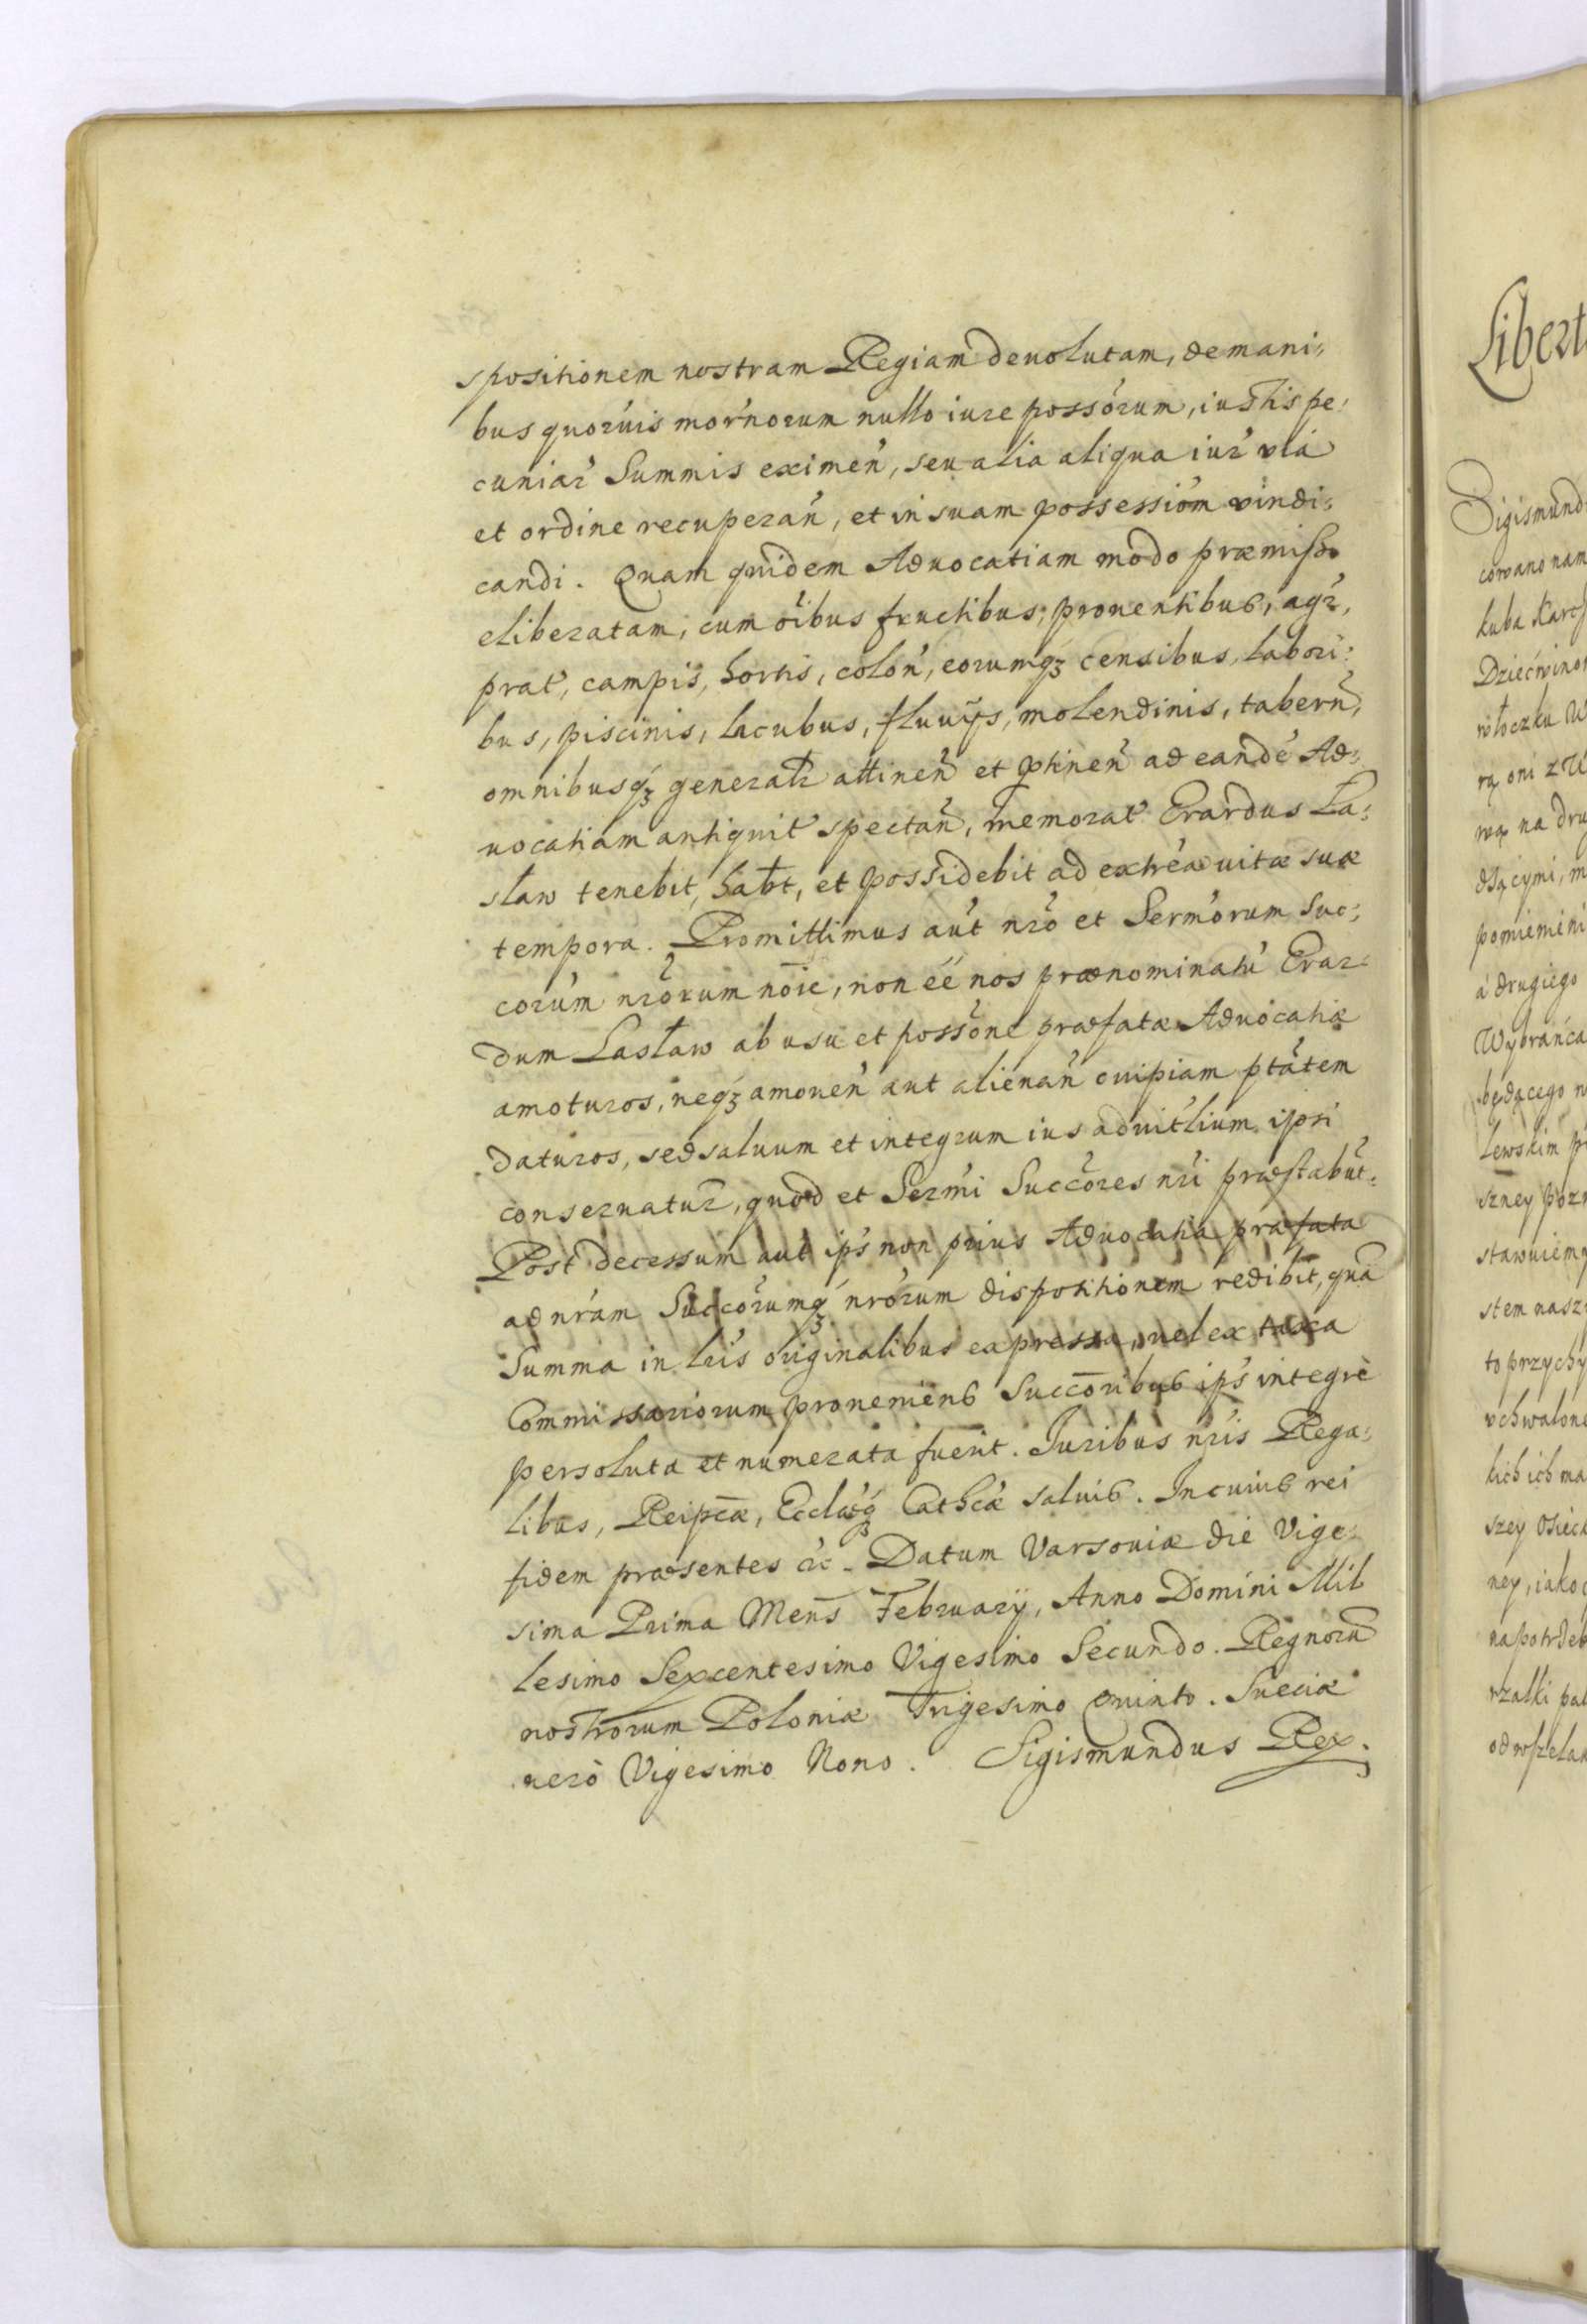 spositionem nostram Regiam deuolutam, de mani:
bus quoruis mornorum nullo iure possorum, iustis pe:
cuniar Summis eximen, seu alia aliqua iur via
et ordine recuperan, et in suam possession vindi:
candi. Quam quidem Aduocatiam modo præmisso
eliberatam, cum oibus fructibus, prouentibus, agr,
prat, campis, hortis, colon, eorumqȝ censibus, labori:
bus, piscinis, lacubus, fluuijs, molendinis, tabern,
omnibusqȝ generalr attinen et ptinen ad eande Ad:
uocatiam antiquit spectan, memorat Erardus La:
sław tenebit, habt, et possidebit ad extrea uitæ suæ
tempora. Promittimus aut nro et Sermorum Suc:
corum nrorum noie, non eé nos prænominatu Erar:
dum Lasław ab usu et possone præfatæ Aduocatiæ
amoturos, neqȝ amouen aut alienan cuipiam ptatem
daturos, sed saluum et integrum ius aduitlium ipsi
conseruatur, quod et Sermi Succores nri præstabut.
Post decessum aut ips non prius Aduocatia præfata
ad nram Succorumqȝ nrorum dispositionem redibit, qua
Summa in lris originalibus expressa, uel ex taxa
Commissariorum proueniens Succoribus ips integrè
persoluta et numerata fuerit. Iuribus nris Rega:
libus, Reipcæ, Ecclæqȝ Cathcæ saluis. In cuius rei
fidem præsentes &c. Datum Varsouiæ die Vige:
sima Prima Mens February, Anno Domini Mil
lesimo Sexcentesimo Vigesimo Secundo. Regnoru
nostrorum Poloniæ Trigesimo Quinto. Sueciæ
uerò Vigesimo Nono. Sigismundus Rex.
Libert
Sigismund
cowano nam
kuba Karc
włoczku W
rą oni z W
wą na dru
pomieni
á drugiego
Wybránca
będącego n
lewskim p
szney poz
stem nasz
to przychy
vchwalon
kich ich ma
szey Osiec
ney, iako
na potrzeb
rzałki pal
od wszelak